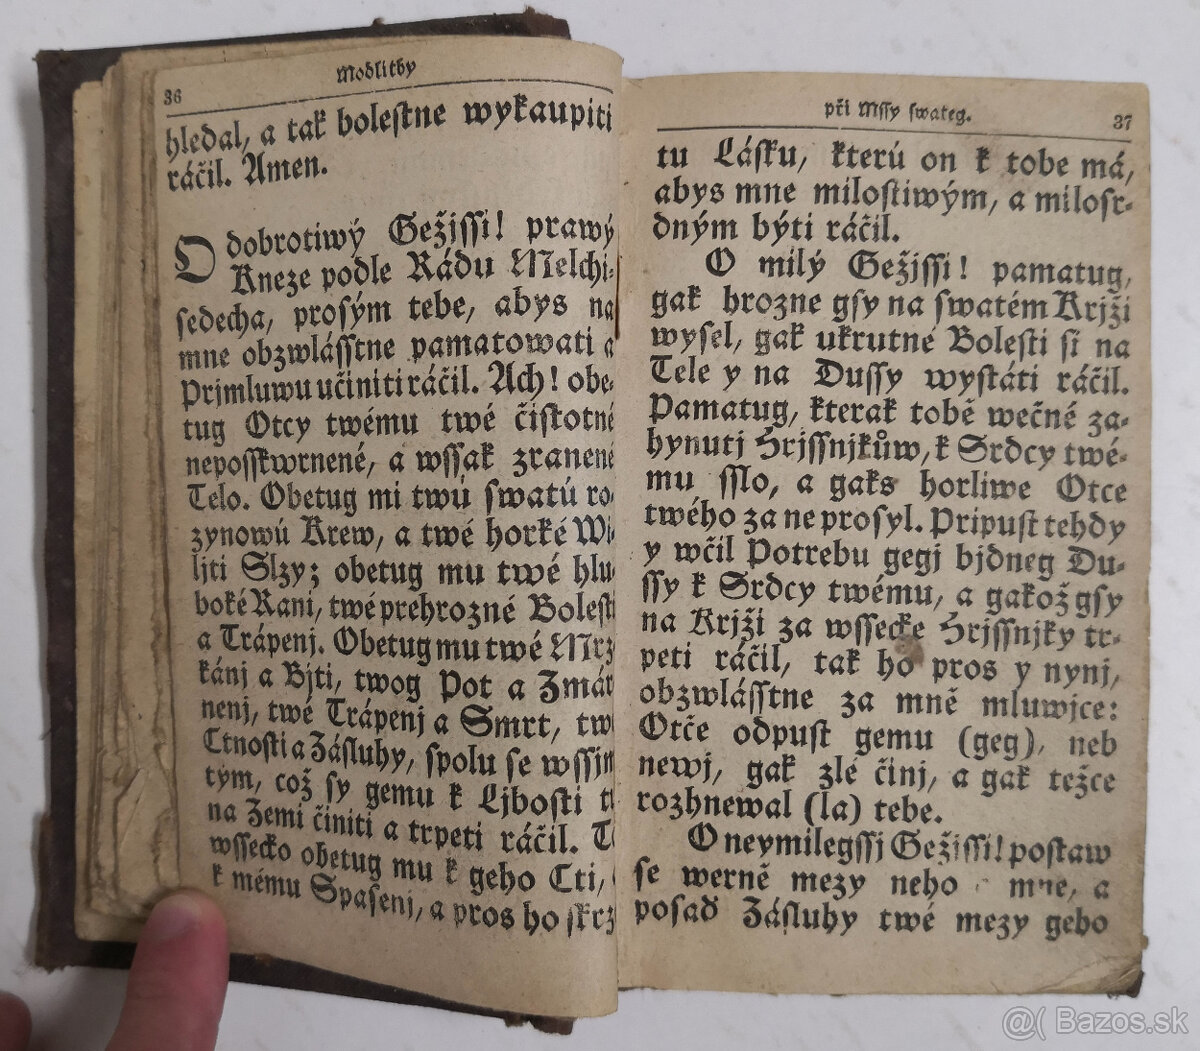 36
Modlitby
hledal, a tak bolestne wykaupiti
ráčil. Amen.
O dobrotiwý Gežissi! prawý
Kneze podle Rádu Melchi-
sedecha, prosým tebe, abys na
mne obzwlásstne pamatowati a
Prjmluwu učiniti ráčil. Ach! obe-
tug Otcy twému twé čistotné
neposskwrnené, a wssak zranené
Telo. Obetug mi twú swatú ro-
zynowú Krew, a twé horké Wi-
ljti Slzy; obetug mu twé hlu-
boké Rani, twé prehrozné Bolesti
a Trápenj. Obetug mu twé Mrz-
kánj a Bjti, twog Pot a Zmár-
nenj, twé Trápenj a Smrt, tw
Ctnosti a Zásluhy, spolu se wssjm
tým, což sy gemu k Ljbosti t
na Zemi činiti a trpeti ráčil. T
wssecko obetug mu k geho Cti,
k mému Spasenj, a pros ho skrz
při Mssy swateg.
37
tu Lásku, kterú on k tobe má,
abys mne milostiwým, a milosr-
dným býti ráčil.
O milý Gežjssi! pamatug,
gak hrozne gsy na swatém Krjži
wysel, gak ukrutné Bolesti si na
Tele y na Dussy wystáti ráčil.
Pamatug, kterak tobě wečné za-
hynutj Hrjssnjkůw, k Srdcy twé-
mu sslo, a gaks horliwe Otce
twého za ne prosyl. Pripust tehdy
y wčil Potrebu gegj bjdneg Du-
ssy k Srdcy twému, a gakož gsy
na Krjži za wssecke Hrjssnjky tr-
peti ráčil, tak ho pros y nynj,
obzwlásstne za mně mluwjce:
Otče odpust gemu (geg), neb
newj, gak zlé činj, a gak težce
rozhnewal (la) tebe.
O neymilegssj Gežissi! postaw
se werně mezy neho mne, a
posad Zásluhy twé mezy geho
@( Bazos.sk